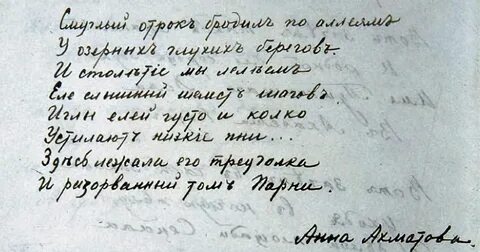 Смуглый отрокъ бродилъ по аллеямъ
У озерныхъ глухихъ береговъ
И столѣтіе мы лелѣемъ
Еле слышный шелестъ шаговъ.
Иглы елей густо и колко
Устилаютъ низкіе пни...
Здѣсь лежала его треуголка
И разорванный томъ Парни.
Анна Ахматова.